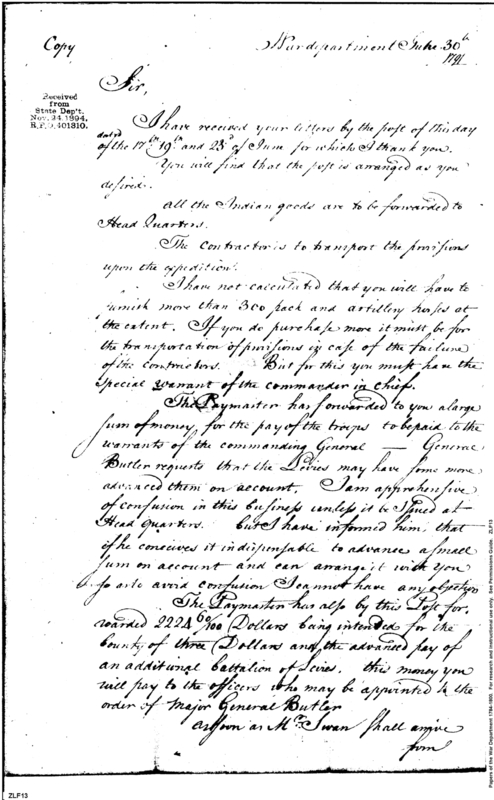 Copy
War department June 30th
1791
Received
from
State Dep't.
Nov. 24, 1894.
R.P. 401310.
Sir,
I have received your letters by the post of this day
dated
of the 17th 19th and 23d of June for which I thank you.
You will find that the post is arranged as you
desired.
All the Indian goods are to be forwarded to
Head Quarters.
The contractor is to transport the provisions
upon the expedition.
I have not calculated that you will have to
furnish more than 300 pack and artillery horses at
the extent. If you do purchase more it must be for
the transportation of provisions in case of the failure
of the contractors. But for this you must have the
special warrant of the commander in chief.
The Paymaster has forwarded to you a large
sum of money, for the pay of the troops to be paid to the
warrants of the commanding General — General
Butler requests that the Levies may have some more
advanced them on account. I am apprehensive
of confusion in this business unless it be issued at
Head Quarters. But I have informed him, that
if he conceives it indispensable to advance a small
sum on account and can arrange it with you
so as to avoid confusion I cannot have any objection
The Paymaster has also by this Post for,
warded 2224 60/100 Dollars being intended for the
bounty of three Dollars and the advanced pay of
an additional battalion of Levies. this money you
will pay to the officers who may be appointed to the
order of Major General Butler
As soon as Mr. Swan shall arrive
from
ZLF13
Papers of the War Department 1784-1800. For research and instructional use only. See Permissions Guide. ZLF13